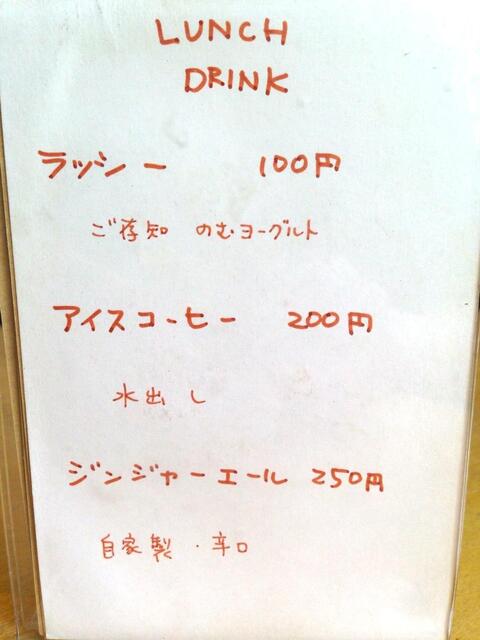 LUNCH
DRINK
ラッシー 100円
ご存知 のむヨーグルト
アイスコーヒー 200円
水出し
ジンジャーエール 250円
自家製・辛口